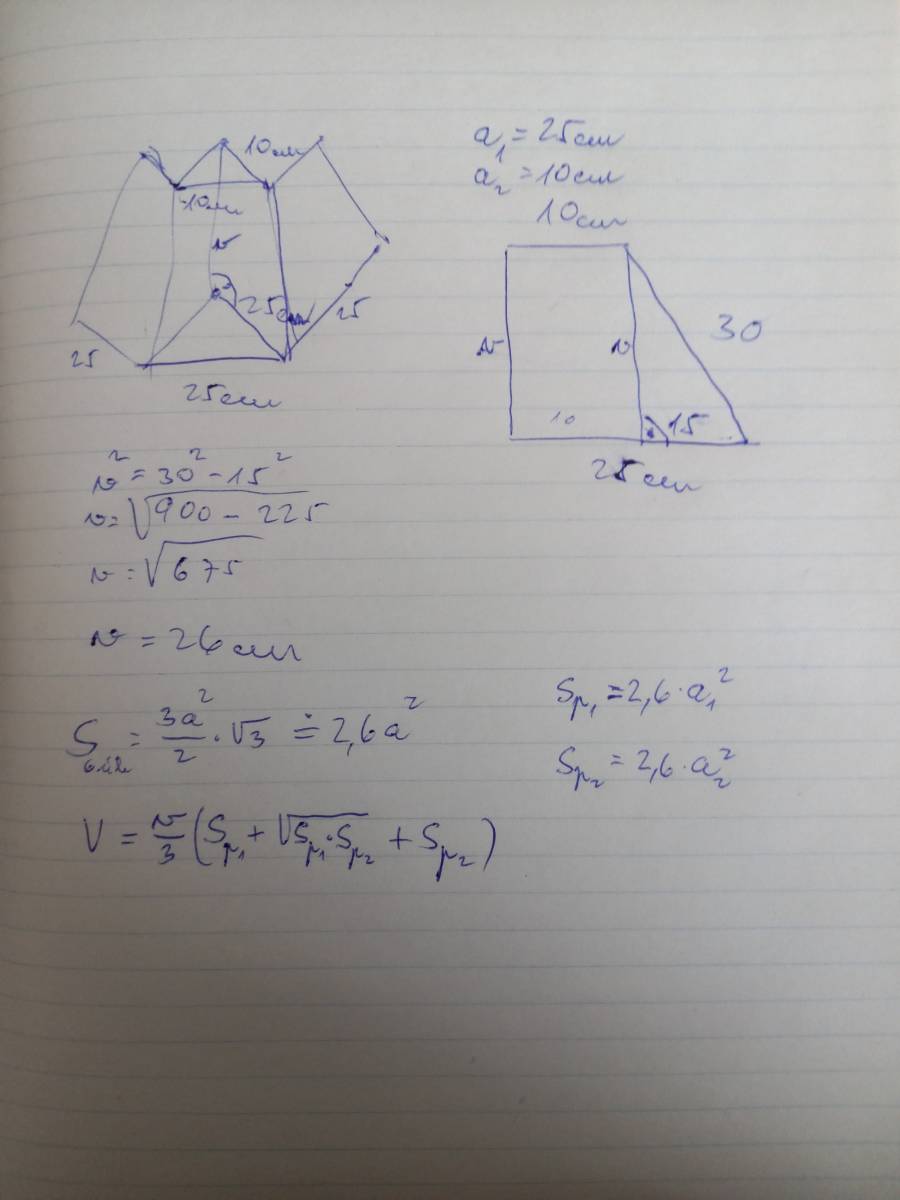 10cm
10cm
v
25cm
25
25
25cm
a₁ = 25cm
a₂ = 10cm
10cm
v
v
30
10
15
25cm
v² = 30² - 15²
v = √900 - 225
v = √675
v = 26cm
S = 3a²/2 · √3 ≐ 2,6a²
Sₚ₁ = 2,6 · a₁²
Sₚ₂ = 2,6 · a₂²
V = v/3 (Sₚ₁ + √Sₚ₁·Sₚ₂ + Sₚ₂)